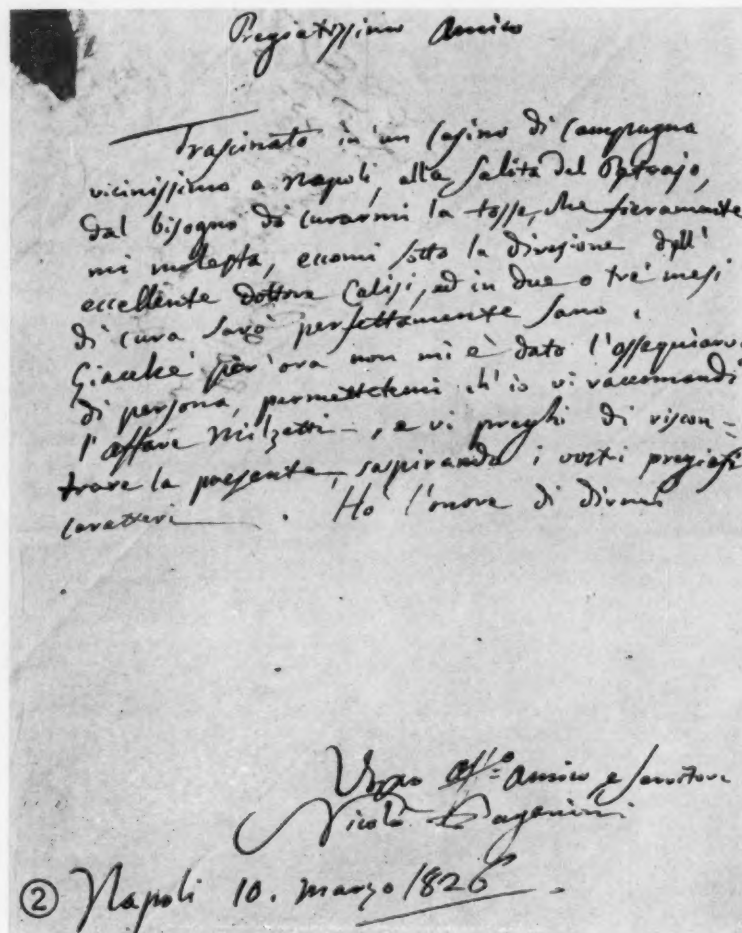 Pregiatissimo Amico
Trascinato in un Casino di Campagna
vicinissimo a Napoli, alla Salita del Petrajo,
dal bisogno di curarmi la tosse, che fieramente
mi molesta, eccomi sotto la direzione dell'
eccellente dottore Calisi, ed in due o tre mesi
di cura sarò perfettamente sano.
Giacché per'ora non mi è dato l'ossequiarvi
di persona, permettetemi ch'io vi raccomandi
l'affare Milzetti, e vi preghi di riscon=
trare la presente, sospirando i vostri pregiati
caratteri. Ho l'onore di dirmi
Vostro aff.mo Amico e Servitore
Nicolò Paganini
② Napoli 10. Marzo 1826.